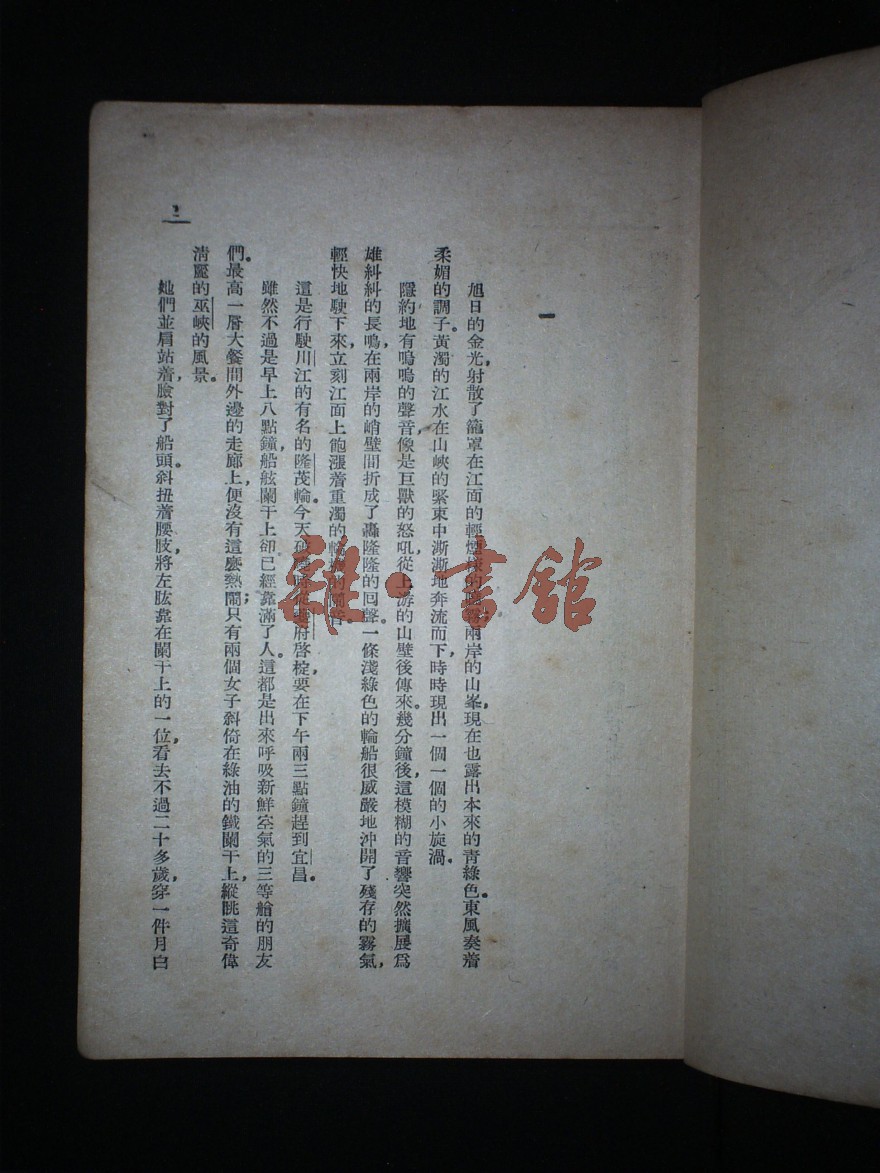 一
旭日的金光，射散了籠罩在江面的輕煙樣的兩岸的山峯，現在也露出本來的青綠色。東風奏着
柔媚的調子。黃濁的江水在山峽的緊束中澌澌地奔流而下，時時現出一個一個的小旋渦。
隱約地有嗚嗚的聲音，像是巨獸的怒吼，從上游的山壁後傳來。幾分鐘後，這模糊的音響突然擴展爲
雄糾糾的長鳴，在兩岸的峭壁間折成了轟隆隆的回聲。一條淺綠色的輪船很威嚴地沖開了殘存的霧氣，
輕快地駛下來，立刻江面上飽漲着重濁的輪
這是行駛川江的有名的隆茂輪。今天破府啓椗，要在下午兩三點鐘趕到宜昌。
雖然不過是早上八點鐘，船舷闌干上卻已經靠滿了人。這都是出來呼吸新鮮空氣的三等艙的朋友
們。最高一層大餐間外邊的走廊上，便沒有這麼熱鬧；只有兩個女子斜倚在綠油的鐵闌干上，縱眺這奇偉
清麗的巫峽的風景。
她們並肩站着，臉對了船頭。斜扭着腰肢，將左肱靠在闌干上的一位，看去不過二十多歲，穿一件月白
雜·書館